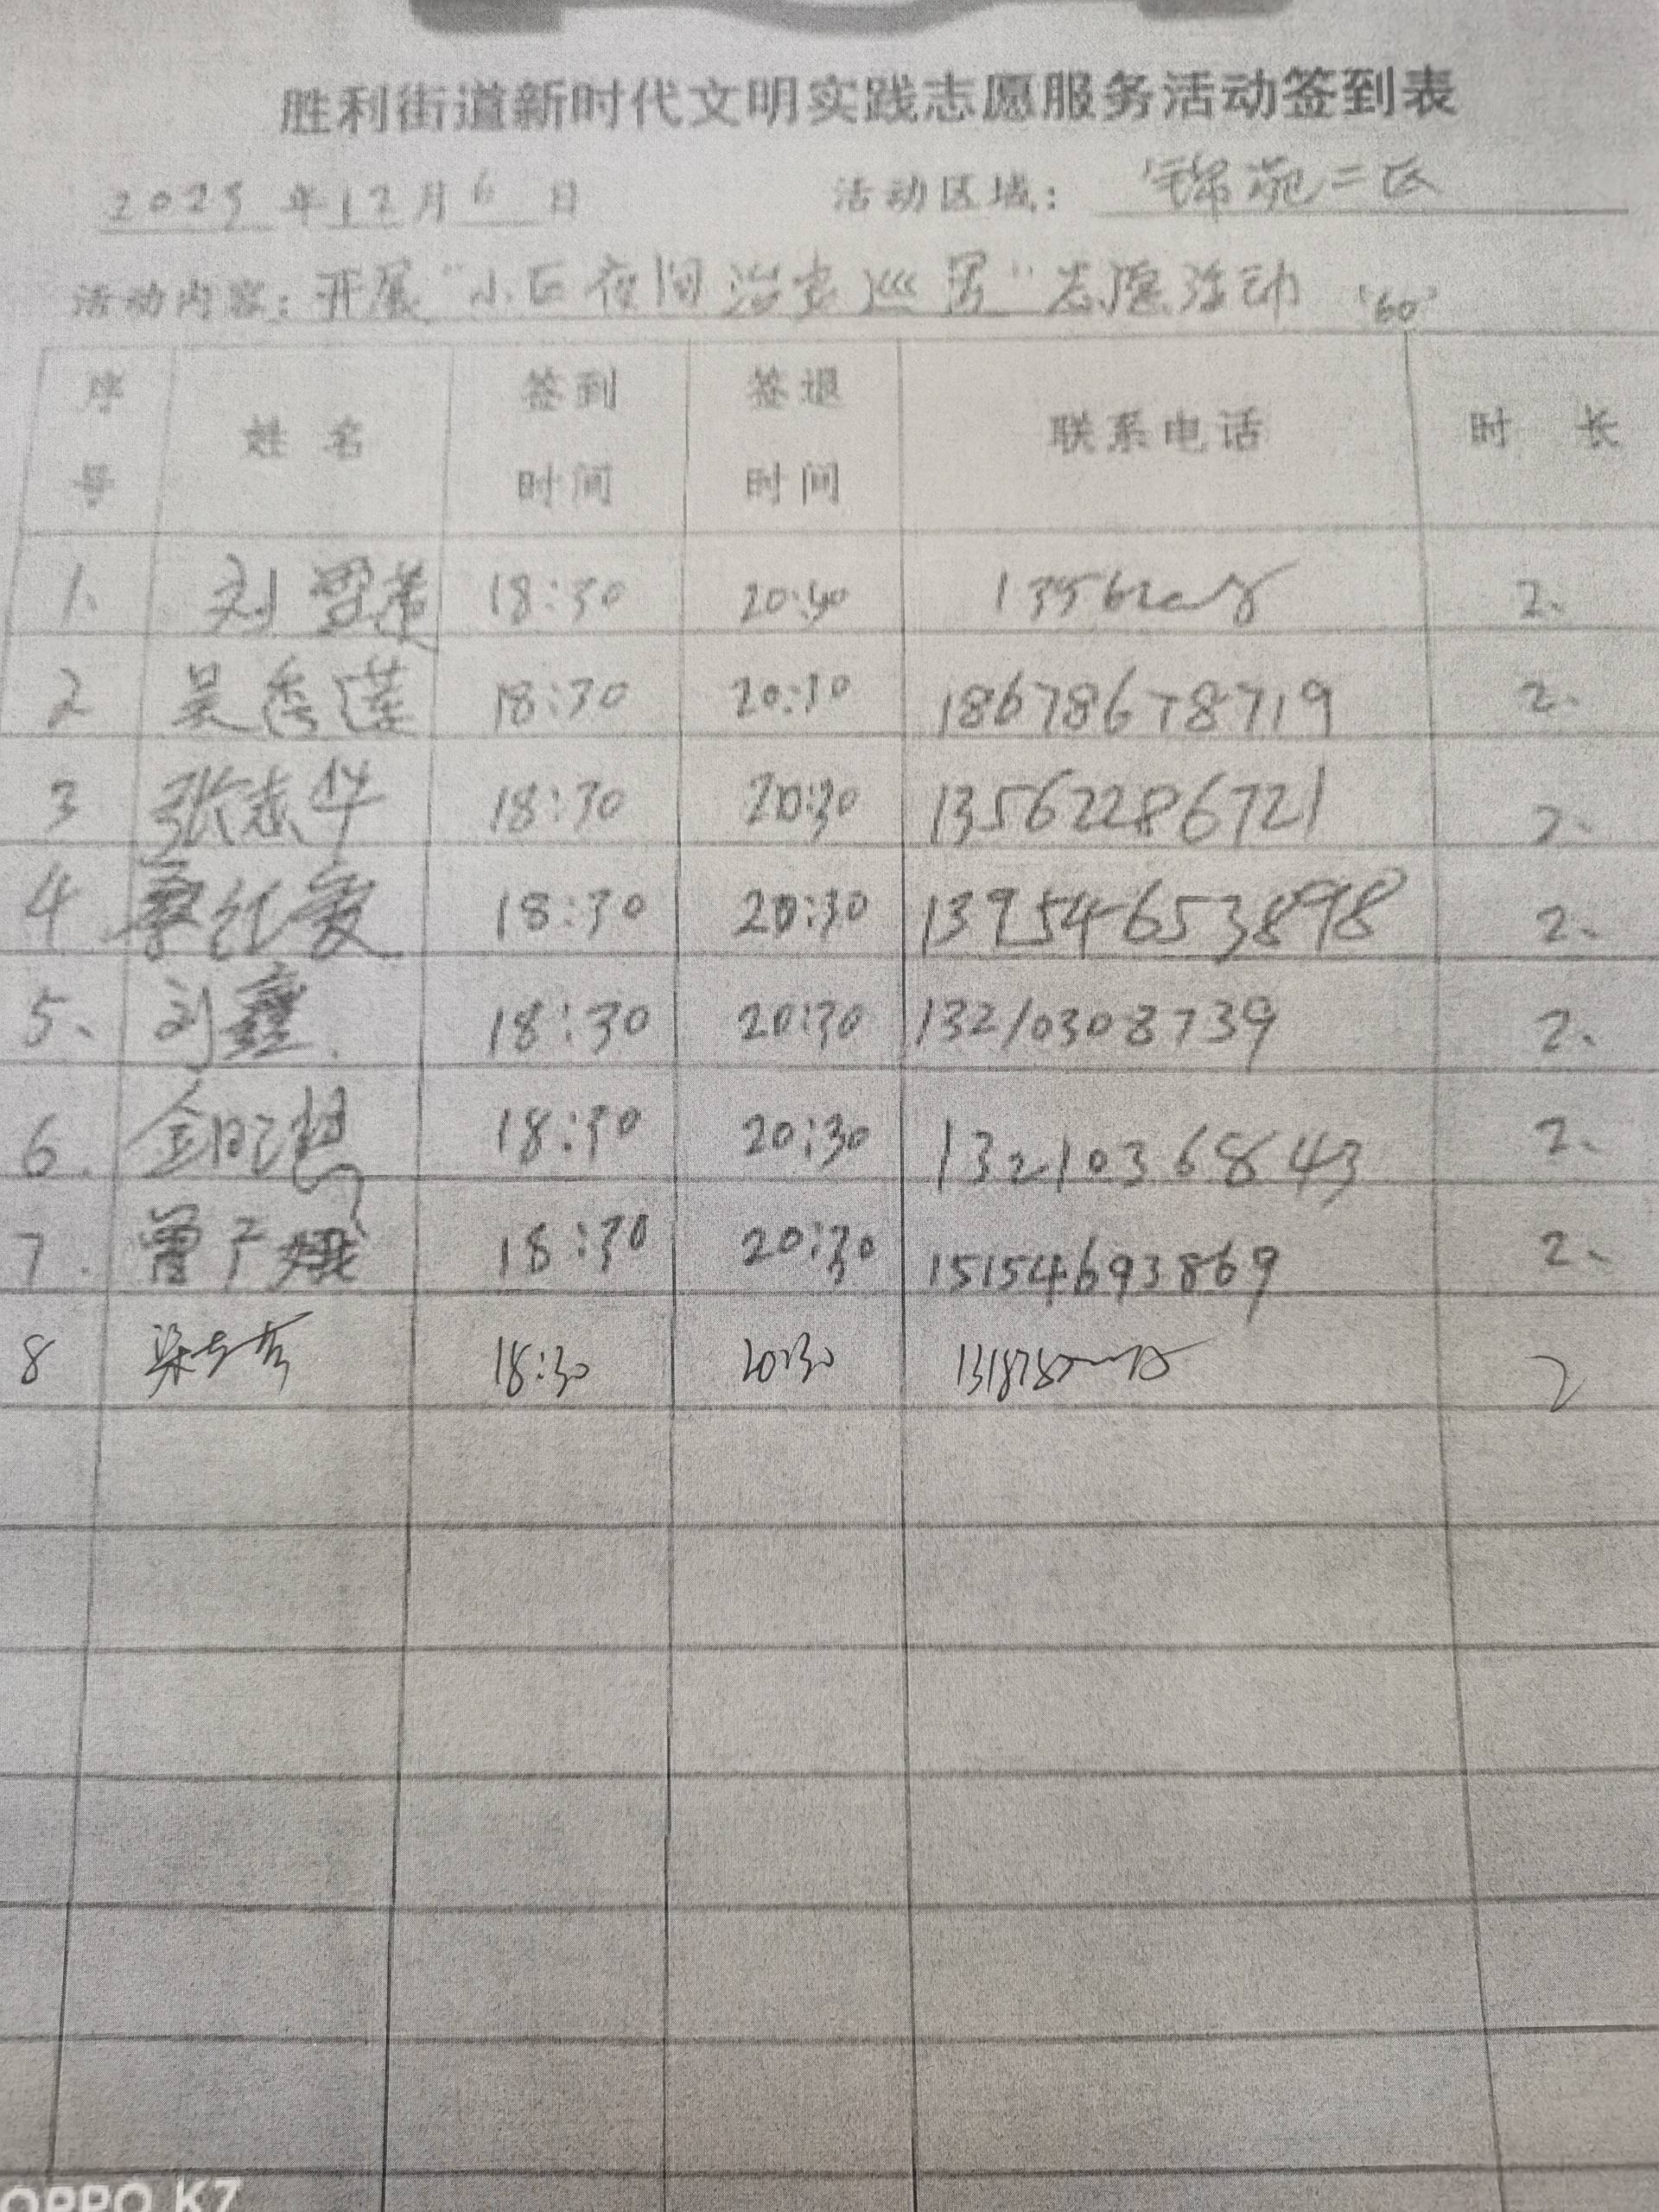 胜利街道新时代文明实践志愿服务活动签到表
2025年12月6日 活动区域：锦苑二区
活动内容：开展“小区夜间治安巡逻”志愿活动 '60'
序号 姓名 签到时间 签退时间 联系电话 时长
1、 刘 18:30 2、
2 吴秀莲 18:30 20:30 18678678719 2、
3 张志华 18:30 20:30 13562286721 2、
4 18:30 20:30 13954653898 2、
5、 刘鑫 18:30 20:30 13210308739 2、
6. 金 18:30 20:30 13210368643 2、
7. 曾 18:30 20:30 15154693869 2、
8 梁 18:30 20:30 2
OPPO K7